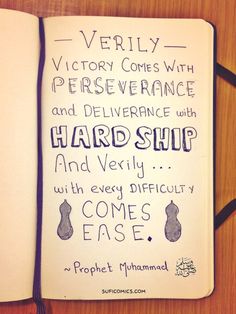 — VERILY —
VICTORY COMES WITH
PERSEVERANCE
and DELIVERANCE with
HARDSHIP
And Verily ...
with every DIFFICULTY
COMES
EASE.
~Prophet Muhammad
SUFICOMICS.COM